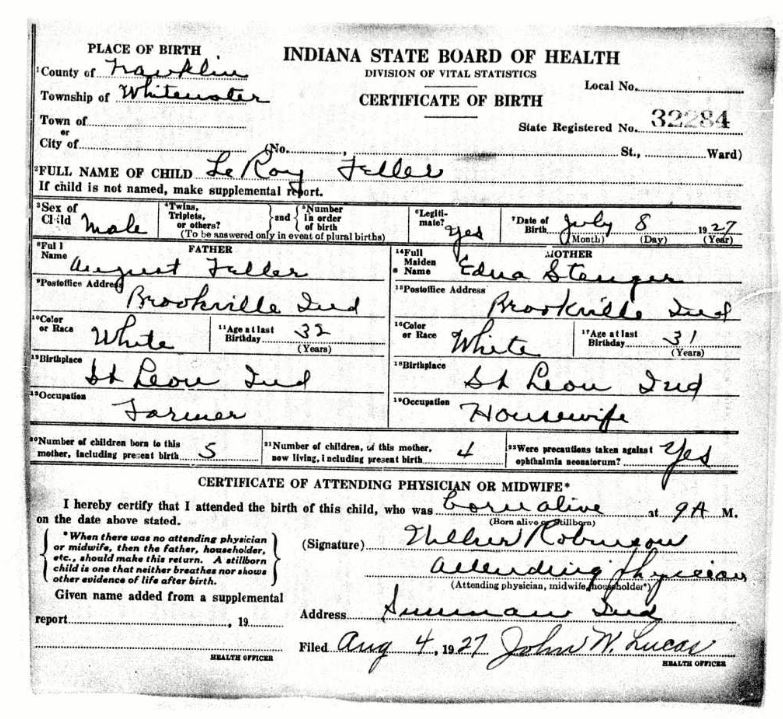 PLACE OF BIRTH
INDIANA STATE BOARD OF HEALTH
DIVISION OF VITAL STATISTICS
CERTIFICATE OF BIRTH
1County of Franklin
Township of Whitewater
Town of
or
City of
Local No.
State Registered No. 32284
(No. , St., Ward)
2FULL NAME OF CHILD LeRoy Feller
If child is not named, make supplemental report.
3Sex of Child Male
4Twins, Triplets, or others? } and { 5Number in order of birth
(To be answered only in event of plural births)
6Legiti-mate? Yes
7Date of Birth July 8 1927
(Month) (Day) (Year)
FATHER
8Full Name August Feller
9Postoffice Address
Brookville Ind
10Color or Race White
11Age at last Birthday 32
(Years)
12Birthplace
St Leon Ind
13Occupation
Farmer
MOTHER
14Full Maiden Name Edna Stenger
15Postoffice Address
Brookville Ind
16Color or Race White
17Age at last Birthday 31
(Years)
18Birthplace
St Leon Ind
19Occupation
Housewife
20Number of children born to this mother, including present birth 5
21Number of children, of this mother, now living, including present birth 4
22Were precautions taken against ophthalmia neonatorum? Yes
CERTIFICATE OF ATTENDING PHYSICIAN OR MIDWIFE*
I hereby certify that I attended the birth of this child, who was born alive at 9A M.
(Born alive or Stillborn)
on the date above stated.
*When there was no attending physician
or midwife, then the father, householder,
etc., should make this return. A stillborn
child is one that neither breathes nor shows
other evidence of life after birth.
Given name added from a supplemental
report , 19
HEALTH OFFICER
(Signature) Robinson
attending Physician
(Attending physician, midwife, householder*)
Address Sunman Ind
Filed Aug 4, 1927 John W. Lucas
HEALTH OFFICER